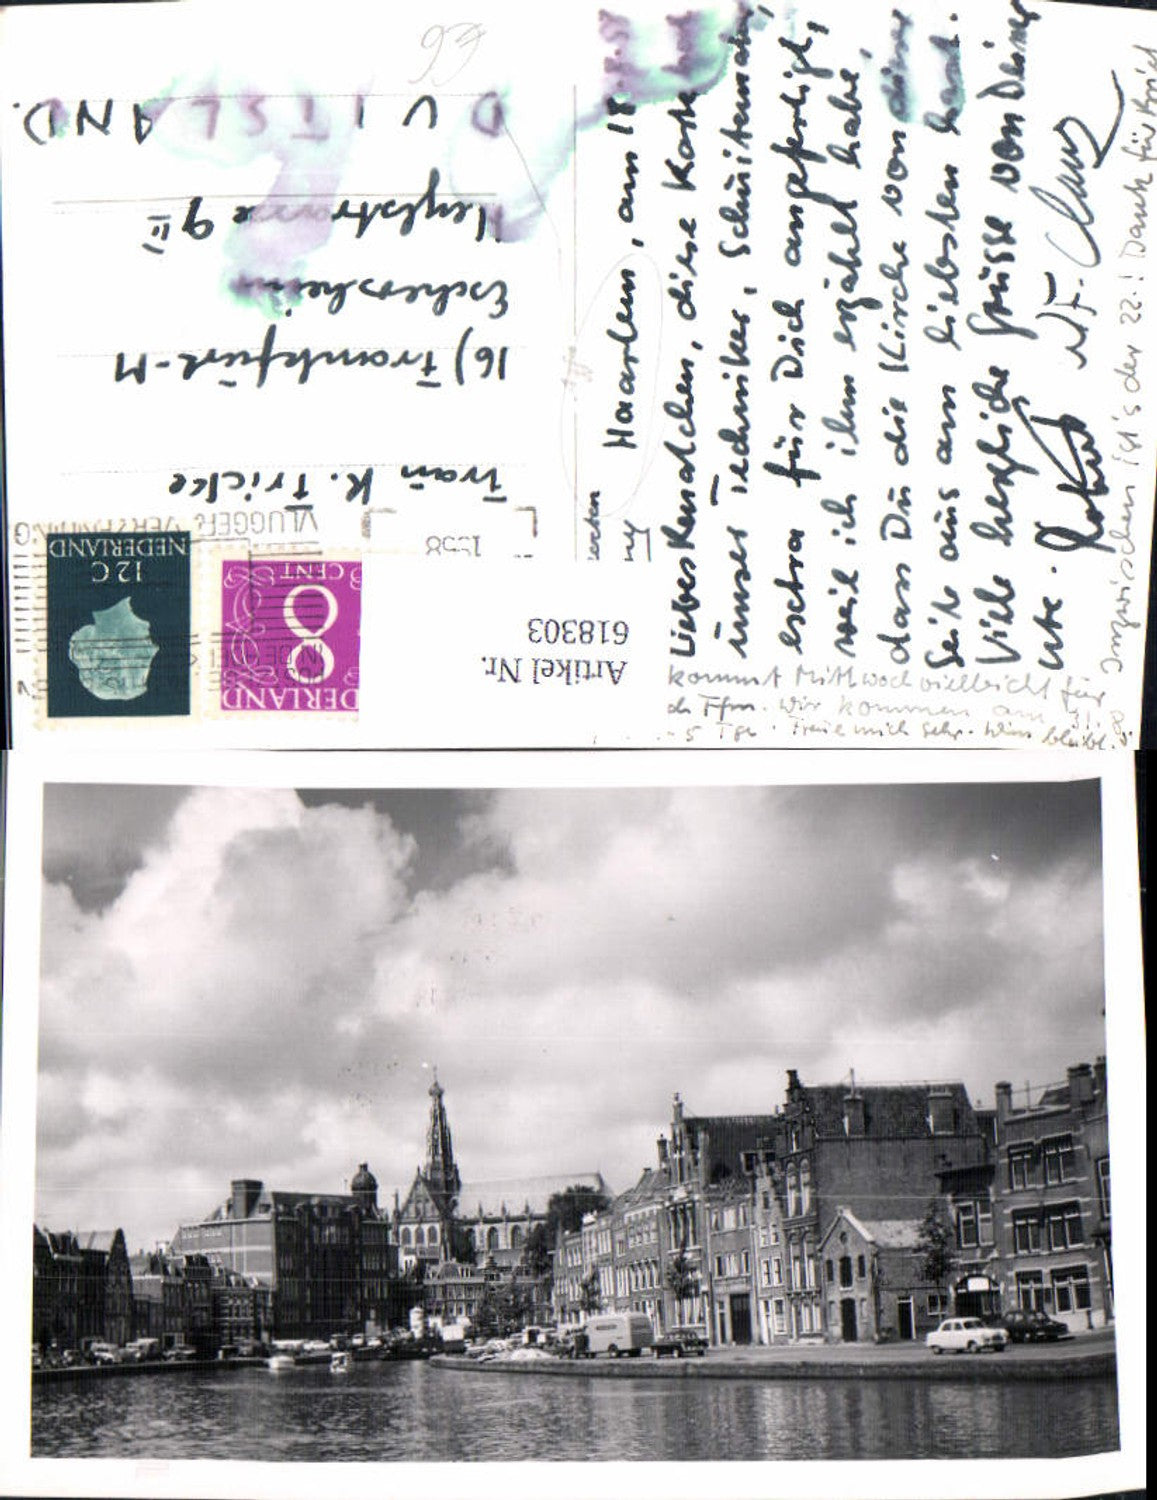 Haarlem, am 18.
Liebes Renalchen, diese Karte hat
unser Techniker, Schuitemaker,
exstra für Dich angefertigt,
weil ich ihm erzählt habe,
dass Du die Kirche von dieser
Seite aus am liebsten hast.
Viele herzliche Grüsse von Deiner
Ute.
N.F. Claus
Inzwischen ist's der 22.! Dank für Brief
kommt Mittwoch vielleicht für
Ffm. Wir kommen am 31.
5 Tge. Freue mich sehr.
66
DUITSLAND.
Heylstrasse 9 III
Eschersheim
16) Frankfurt-M
Frau K. Fricke
VLUGGER VERZENDING
1958
NEDERLAND
12 C
8
CENT
DERLAND
Artikel Nr.
618303